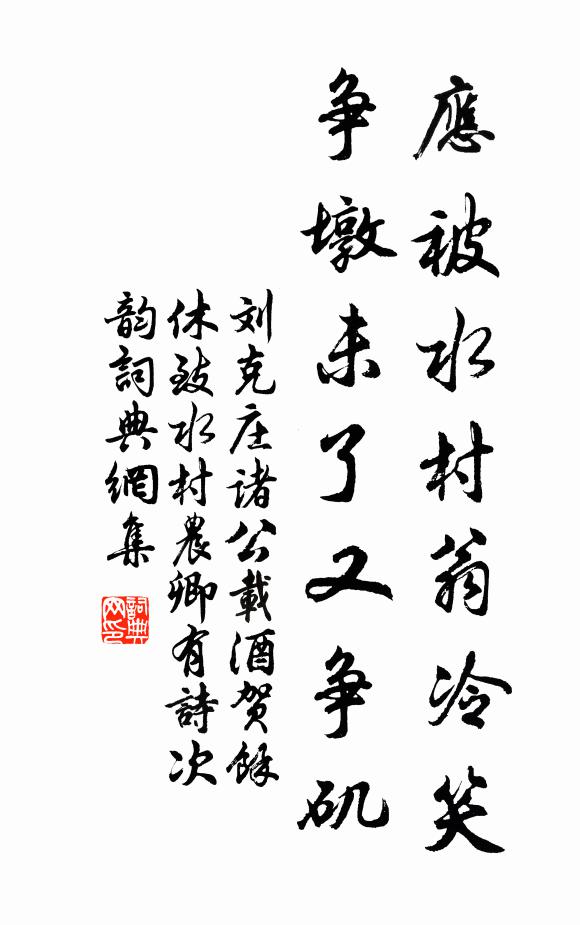 應被水村翁冷笑
争墩未了又争矶
刘克庄诸公載酒贺餘
休致水村農卿有詩次
韵詞典網集
詞典網印